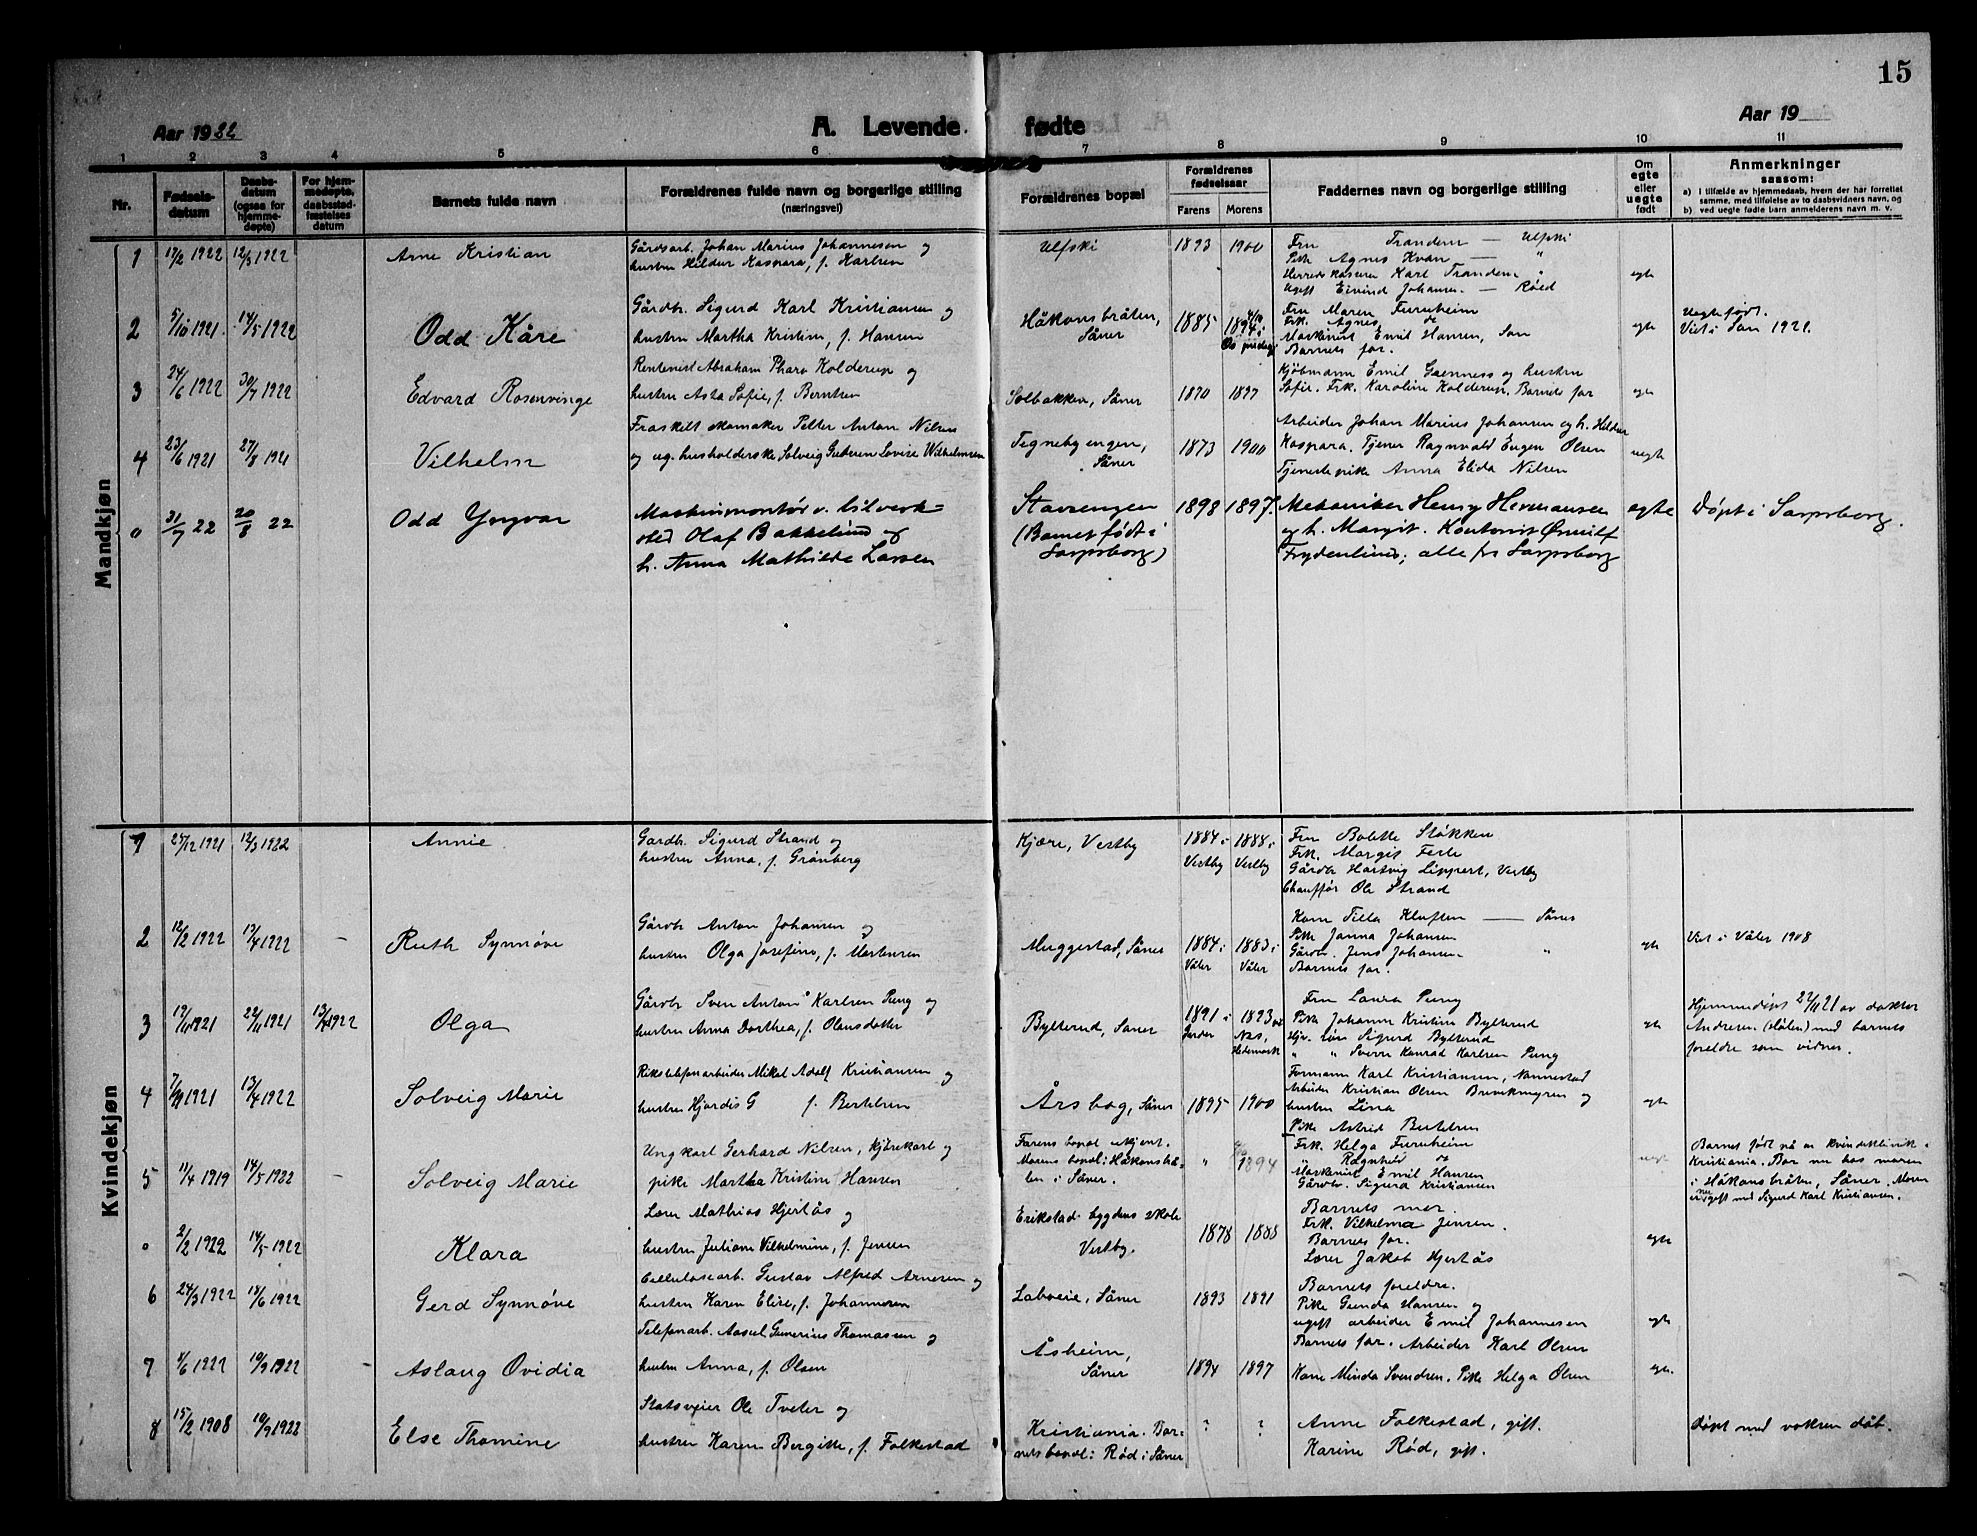 15
Aar 1922
A. Levende fødte
Aar 19
1 2 3 4 5 6 7 8 9 10 11
Nr.
Fødsels-
datum
Daabs-
datum
(ogsaa for
hjemme-
døpte)
For hjem-
medøpte,
daabsstad-
fæstelses
datum
Barnets fulde navn
Forældrenes fulde navn og borgerlige stilling
(næringsvei)
Forældrenes bopæl
Forældrenes
fødselsaar
Farens. Morens
Faddernes navn og borgerlige stilling
Om
egte
eller
uegte
født
Anmerkninger
saasom:
a) I tilfælde av hjemmedaab, hvem der har forrettet
samme, med tilføielse av to daabsvidners navn, og
b) ved uegte fødte barn anmelderens navn m. v.
Mandkjøn
1 17/2 1922 12/3 1922 Arne Kristian
Gårdsarb. Johan Marius Johannesen og
hustru Hildur Kaspara, f. Karlsen
Ulfski 1893 1900
Fru Tranden — Ulfski
Pike Agnes Kvan — "
Herredskaserer Karl Tranden "
Ugift Eivind Johansen — Røed
egte
2 5/10 1921 14/5 1922 Odd Kåre
Gårdbr. Sigurd Karl Kristiansen og
hustru Martha Kristine, f. Hansen
Håkonsbråten,
Såner
1885 1894
Fru Maren Furuheim
Frk. Agnes do
Maskinist Emil Hansen, Son
Barnets far.
egte
Uegte født.
Viet i Son 1921.
3 24/6 1922 30/7 1922 Edvard Rosenvinge
Rentenist Abraham Pharo Holderup og
hustru Asta Sofie, f. Berntsen
Solbakken, Såner 1870 1897
Kjøbmann Emil Gaenness og hustru
Sofie. Frk. Karoline Holderup. Barnets far
egte
4 23/6 1921 27/8 1921 Vilhelm
Fraskilt skomaker Petter Anton Nilsen
og ug. husholderske Solveig Gudrun Lovise Wilhelmsen
Tegnebyengen,
Såner
1873 1900
Arbeider Johan Marius Johansen og h. Hildur
Kaspara. Tjener Ragnvald Eugen Olsen
Tjenestepike Anna Elida Nilsen
uegte
0 31/7 22 20/8 22 Odd Yngvar
Maskinmontør v. bilverk=
sted Olaf Bakkelund og
h. Anna Mathilde Larsen
Stavengen
(Barnet født i
Sarpsborg)
1898 1897.
Mekaniker Henry Hermansen
og h. Margit. Kontorist Ørnulf
Frydenlund; alle fra Sarpsborg
egte
Døpt i Sarpsborg.
Kvindekjøn
1 25/12 1921 12/3 1922 Annie
Gardbr. Sigurd Strand og
hustru Anna, f. Grønberg
Kjære, Vestby
1884 i
Vestby
1888 i
Vestby
Fru Bolette Støkken
Frk. Margit Ferle
Gårdbr Hartvig Lippert, Vestby
Chauffør Ole Strand
2 12/2 1922 17/4 1922 — Ruth Synnøve
Gårdbr. Anton Johansen og
hustru Olga Josefine, f. Mortensen
Muggestad, Såner
1884 i
Våler
1883 i
Våler
Kone Tilla Kluften — Såner
Pike Janna Johansen
Gårdbr. Jens Johansen "
Barnets far.
egte
Viet i Våler 1908
3 19/11 1921 22/11 1921 13/4 1922 Olga
Gårdbr Sven Anton Karlsen Pung og
hustru Anna Dorthea, f. Olausdatter
Bylterud, Såner
1891 i
Garder
1893
Nes,
Hedemark
Fru Laura Pung
Pike Johanne Kristine Bylterud
Hjv. søn Sigurd Bylterud
" " Sverre Konrad Karlsen Pung
egte
Hjemmedøpt 22/11 21 av doktor
Andresen (Hølen) med barnets
foreldre som vidner.
4 7/9 1921 13/4 1922 Solveig Marie
Rikstelefonarbeider Mikal Adolf Kristiansen og
hustru Hjørdis G f. Bertelsen
Årsbog, Såner 1895 1900
Formann Karl Kristiansen, Nannestad
Arbeider Kristian Olsen Brevikmyren og
hustru Lina
Pike Astrid Bertelsen
egte
5 11/4 1919 14/5 1922 — Solveig Marie
Ungkarl Gerhard Nilsen, kjørekarl og
pike Martha Kristine Hansen
Farens bopæl ukjent.
Morens bopæl: Håkonsbrå=
ten i Såner.
" 1894
Frk. Helga Furuheim
" Ragnhild do
Maskinist Emil Hansen
Gårdbr. Sigurd Kristiansen
Barnets mor.
uegte
Barnet født på en kvindeklinik i
Kristiania. Bor nu hos moren
i Håkonsbråten, Såner. Moren
er nu gift med Sigurd Karl Kristiansen.
0 2/2 1922 14/5 1922 Klara
Lærer Mathias Hjertås og
hustru Juliane Vilhelmine, f. Jensen
Erikstad bygdens skole
Vestby.
1878 1888
Frk. Vilhelma Jensen.
Barnets far.
Lærer Jakob Hjertås
egte
6 24/3 1922 18/6 1922 Gerd Synnøve
Cellulosearb. Gustav Alfred Arnesen og
hustru Karen Elise, f. Johannesen
Labveie, Såner 1893 1891
Barnets foreldre.
Pike Gunda Hansen og
ugift arbeider Emil Johannesen
egte
7 4/6 1922 10/9 1922 — Aslaug Ovidia
Telefonarb. Aksel Gunerius Thomassen og
hustru Anna, f. Olsen
Åsheim,
Såner
1894 1897
Barnets far. Arbeider Karl Olsen
Kone Minda Svendsen. Pike Helga Olsen
egte.
8 15/2 1908 10/9 1922 Else Thomine
Statsveier Ole Tveter og
hustru Karen Bergitte, f. Folkestad
Kristiania. Bar=
nets bopæl: Rød i Såner
? ?
Anne Folkestad, gift.
Karine Rød, gift.
Døpt med voksen dåb.